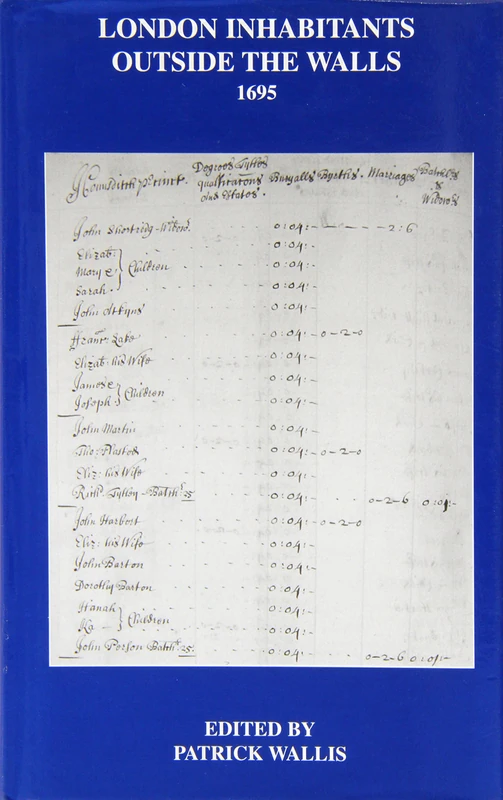 LONDON INHABITANTS
OUTSIDE THE WALLS
1695
Degrees Tytles
qualificatons Buryalls Byrths Marriages Batchlrs
and Estates. & Widowrs
John Shortridg - Widowr 0:04:- 2:6
Elizab: 0:04:-
Mary & } Children 0:04:-
Sarah 0:04:-
John Atkyns 0:04:-
Lake 0:04:- 0-2-0
Elizab: his Wife 0:04:-
James & } Children 0:04:-
Joseph 0:04:-
John Martin 0:04:-
Tho: 0:04:- 0-2-0
Eliz: his Wife 0:04:-
Batchr 25 0:04:- 0-2-6 0:01:-
John Harbert 0:04:- 0-2-0
Eliz: his Wife 0:04:-
John Barton 0:04:-
Dorothy Barton 0:04:-
Hanah } Children 0:04:-
0:04:-
John Batchr 25: 0:04:- 0-2-6 0:01:-
EDITED BY
PATRICK WALLIS